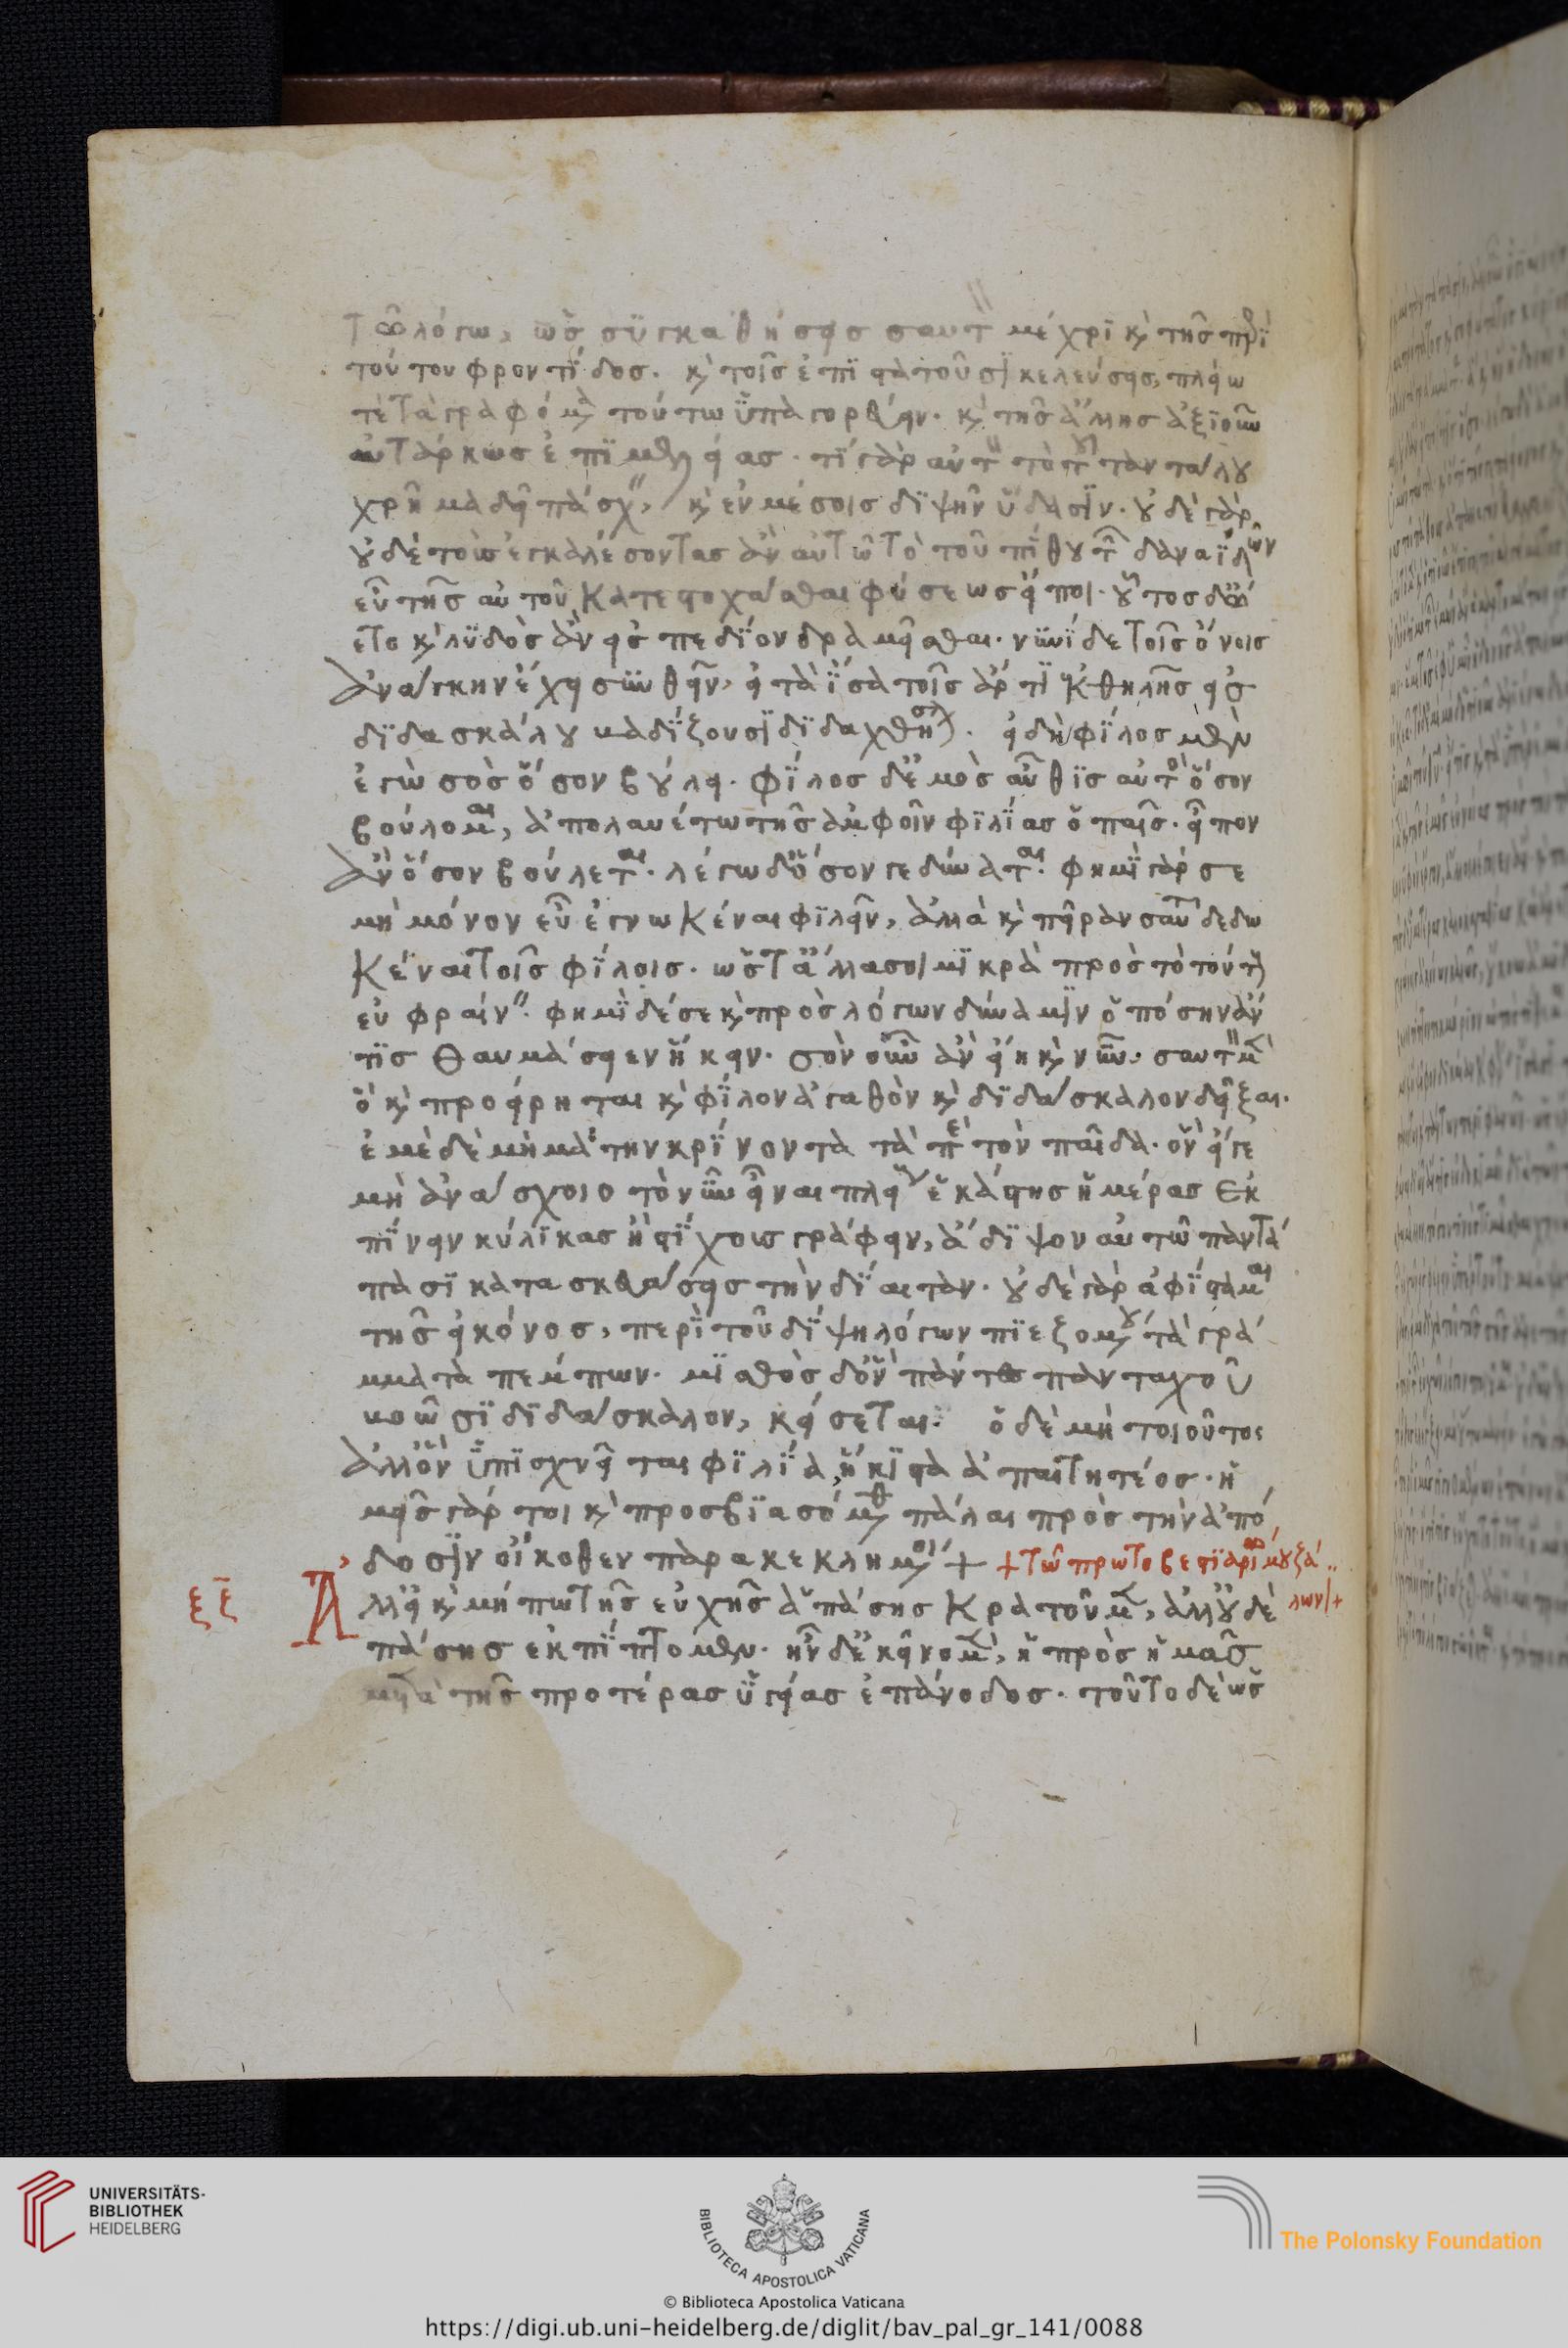 τῶ λόγω, ὡς συγκαθήσεις σαυτὸν μέχρι καὶ τῆς περὶ
τούτου φροντίδος. καὶ τοῖς ἐπιστατοῦσι κελεύσεις, πλείω
τὲ τὰ γραφόμενα τούτω
αὐτάρκως ἐπιμελείας. τί γὰρ αὐτὸν τὸ τοῦ ταντάλου
χρῆμα δεῖ πάσχειν, καὶ ἐν μέσοις διψῆν ὕδασιν. οὐδὲ γὰρ
οὐδὲ τοὺς ἐγκαλέσοντας ἂν αὐτῶ τὸ τοῦ πίθου τῶν δαναΐδων
εὖ τῆς αὐτοῦ κατεστοχάσθαι φύσεως εἴποι. οὗτος
καὶ λυδὸς ἂν εἰς πεδίον δραμεῖσθαι. νυνὶ δὲ τοῖς ὄνοις
ἀνάγκην ἔχει συνθεῖν, εἰ τὰ ἴσα τοῖς ἄρτι ἐκ θηλῆς εἰς
διδασκάλου βαδίζουσι διδαχθήσεται. εἰ δὴ φίλος μὲν
ἐγὼ σὸς ὅσον βούλει. φίλος δ' ἐμὸς αὖθις αὐτὸς ὅσον
βούλομαι, ἀπολαυέτω τῆς ἀμφοῖν φιλίας ὁ παῖς. εἶπον
ἂν ὅσον βούλεται. λέγω δ' ὅσον γε δύναται. φημὶ γάρ σε
μὴ μόνον εὖ ἐγνωκέναι φιλεῖν, ἀλλὰ καὶ πεῖραν σαυτοῦ δεδω
κέναι τοῖς φίλοις. ὡς τἄλλα σοι μικρὰ πρὸς τὸ τούτους
εὐφραίνειν. φημὶ δέ σε καὶ πρὸς λόγων δύναμιν ὁπόσην ἄν
τις θαυμάσειεν ἥκειν. σὸν οὖν ἂν εἴη καὶ νῦν. σαυτὸν μὲν
ὃ καὶ προείρηται καὶ φίλον ἀγαθὸν καὶ διδάσκαλον δεῖξαι.
ἐμὲ δὲ μὴ μάτην κρίνοντα τὰ περὶ τὸν παῖδα. ὃν εἴγε
μὴ ἀνάσχοιο τὸ νῦν εἶναι πλείους ἑκάστης ἡμέρας ἐκ
πίνειν κύλικας ἢ στίχους γράφειν, ἄδιψον αὐτῶ παντά
πασι κατασκευάσεις τὴν δίαιταν. οὐδὲ γὰρ ἀφίσταμαι
τῆς εἰκόνος, περὶ τοῦ δίψη λόγων πιεζομένου τὰ γρά
μματα πέμπων. μισθὸς δ' ὃν πάντες πανταχοῦ
βοῶσι διδάσκαλον, κείσεται. ὁ δὲ μὴ τοιοῦτος
ἀλλ' ὃν ὑπισχνεῖται φιλία, ἥκιστα ἀπαιτητέος. ἡ
μεῖς γάρ τοι καὶ προσβιασόμεθα πάλαι πρὸς τὴν ἀπό
δοσιν οἴκοθεν παρακεκλημένοι + + τῶ πρωτοβεστιαρίω μουζά
ξξ Ἀλλ' εἰ καὶ μήπω τῆς εὐχῆς ἁπάσης κρατοῦμεν, ἀλλ' οὐδὲ λων +
πάσης ἐκπίπτομεν. ἦν δ' ἐκεῖνο μὲν, ἡ πρὸς ἡμᾶς
μετὰ τῆς προτέρας ὑγείας ἐπάνοδος. τοῦτο δὲ ὡς
UNIVERSITÄTS-
BIBLIOTHEK
HEIDELBERG
BIBLIOTECA APOSTOLICA VATICANA
The Polonsky Foundation
© Biblioteca Apostolica Vaticana
https://digi.ub.uni-heidelberg.de/diglit/bav_pal_gr_141/0088